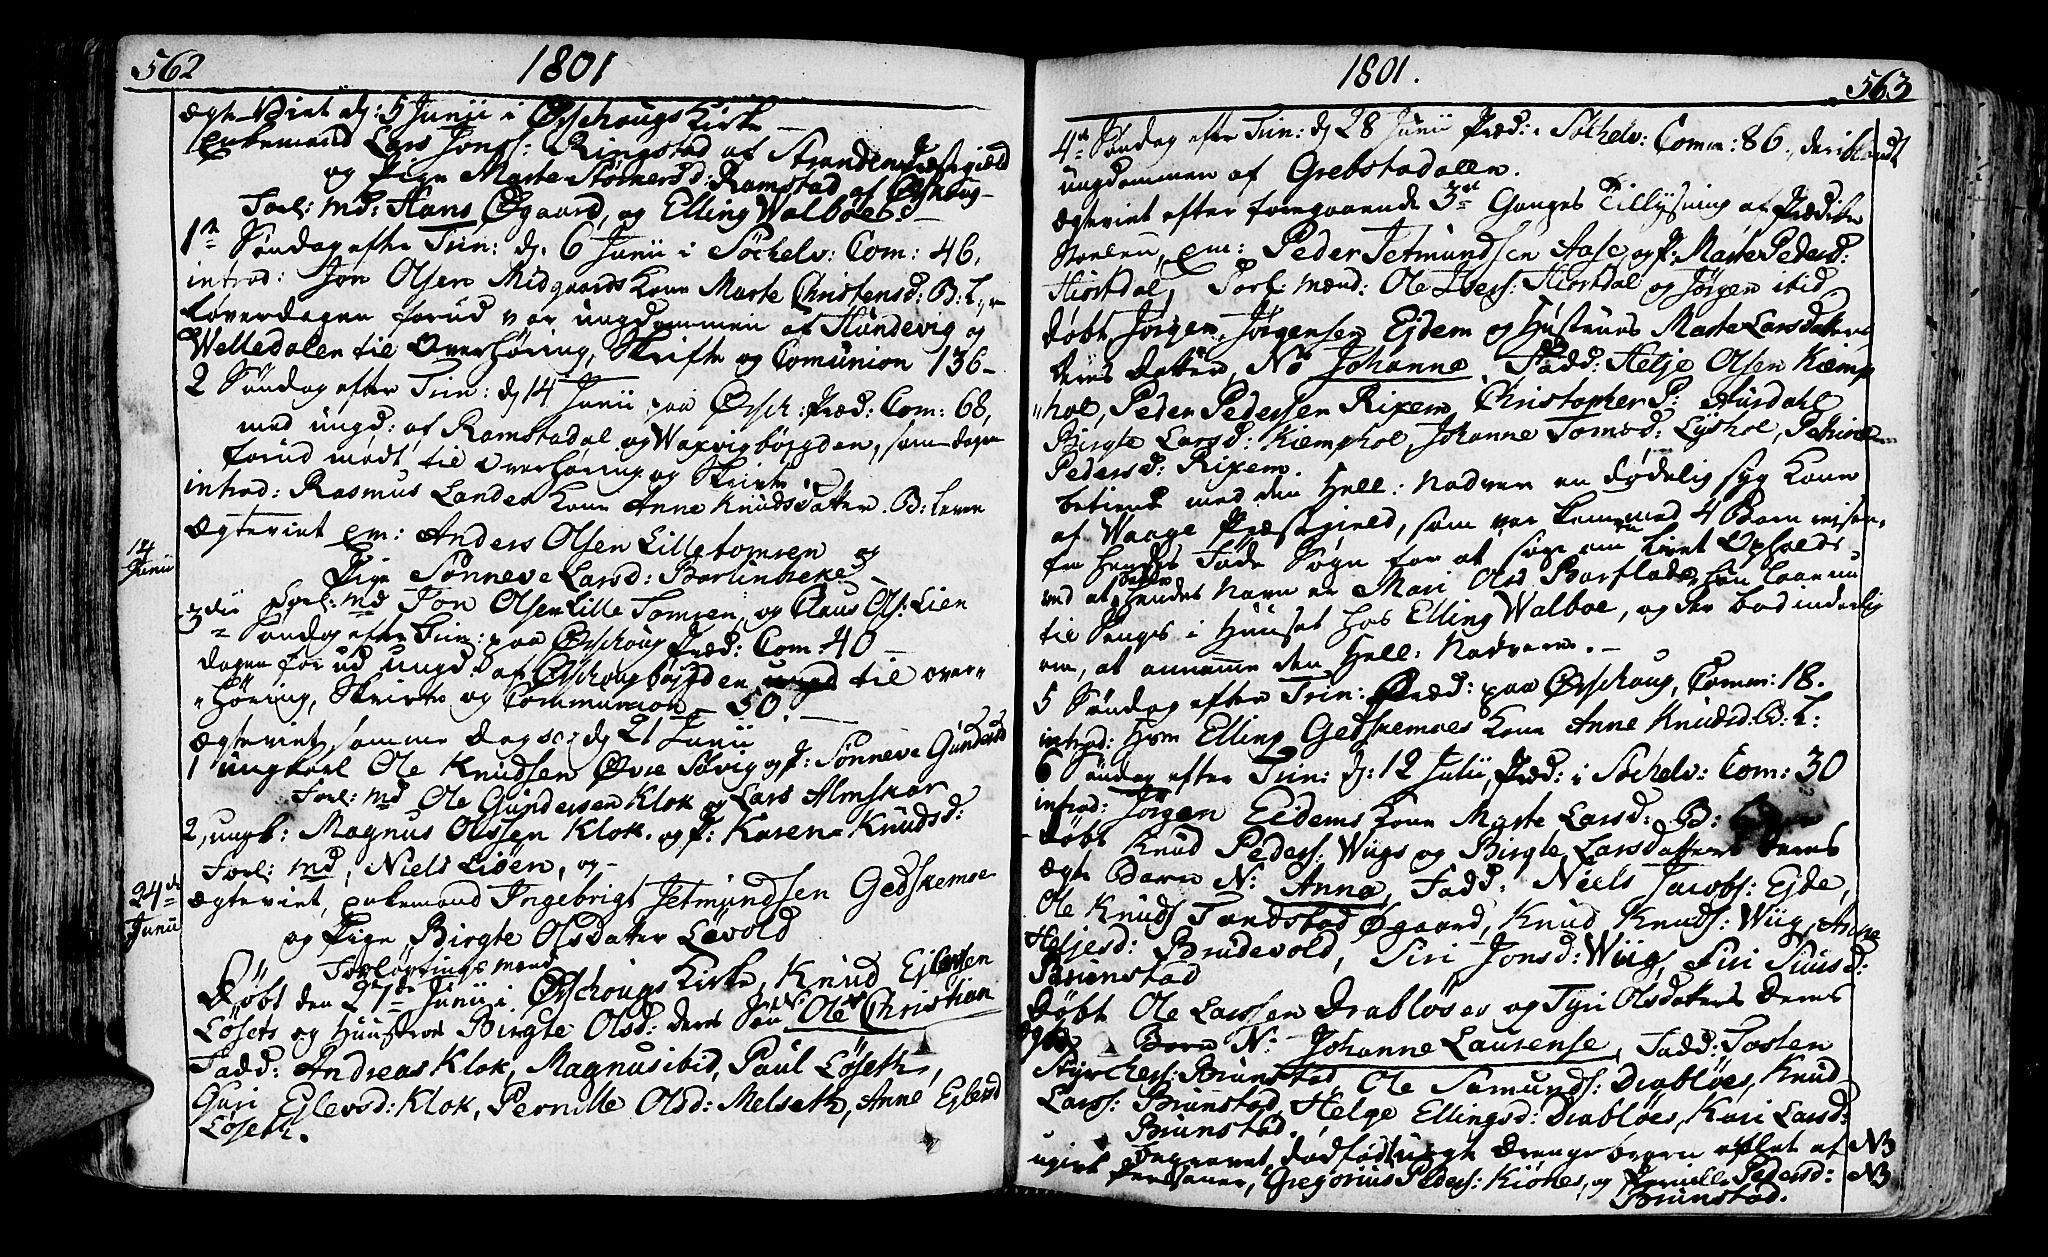 562 1801
ægte Viet d: 5 Junii i Ørschougs Kirke
Enkemand Lars Jonss: Ringstad af Strandens Præstegield
og Pige Marte Stoehersd: Ramstad af Ørskoug
Forl: md: Hans Øgaard, og Elling Walboe
1te Søndag efter Trin: d: 6 Junii i Söchelv: Com: 46,
introd: Jon Olsen Midgaards Kone Marte Christensd: B: L:
Løverdagen forud var ungdommen af Stundevig og
Welledalen til Overhøring, Skrifte og Comunion 136
2 Søndag efter Trin: d 14 Junii paa Ørsch: Præd: Com: 68,
med ungd: af Ramstadal og Waxvigbøygden, som dagen
forud mødt til Overhøring og Skrivte
introd: Rasmus Landes Kone Anne Knüdsdatter. B: leven
14 Junii
Ægteviet em: Anders Olsen Lilletomren og
Pige Sönneve Larsd: Barlinbeke
Forl: md Jon Olsen Lille Tomren, og Claus Ols: Lien
3die Søndag efter Trin: paa Ørschoug Præd: Com 40
dagen forud ungd: af Ørschougbøjgden til over
høring, Skrivte og Communion 50.
Ægteviet samme dag d 21 Junii
1 ungkarl Ole Knudsen Øvre Solvig og P: Sönneve Gundersd
Forl: md Ole Gundersen Klok og Lars Almskar
2, ungk: Magnus Olssen Klok. og P: Karen Knudsd:
Forl: md, Niels Lisen, og
24de Junii
Ægteviet, enkemand Ingebrigt Jetmundsen Gedskemoe
og Pige Birgte Olsdatter Løvold
Forlovnings mænd
Døbt den 27de Junii i Ørschougs Kirke, Knud Ejlersen
Løsets og Hustroe Birgte Olsd: deres Søn N: Ole Christian
Fadd: Andreas Klok, Magnus ibid, Paul Löseth,
Guri Ejlevsd: Klok, Pernille Olsd: Melseth, Anne Ejlersd
Löseth.
1801. 563
4de Søndag efter Trin: d 28 Junii Præd: i Söchelv: Comm: 86, deriblandt
ungdommen af Grebstadalen.
Ægteviet efter foregaaende 3de Ganges Tillysning af Prædike
Stolen, em: Peder Jetmundsen Aase og P: Marte Pedersd:
Hiortdal, Forl: mænd: Ole Iverss: Hiortdal og Jørgen ibid
Døbt, Jørgen Jørgensen Ejdem og Hustrues Marte Larsdatters
deres datter, N: Johanne, Fadd: Helje Olsen Kiemp
hol, Peder Pedersen Rixem, Christopher P: Aursdahl
Birgte Larsd: Kiemphol, Johanne Tomsd: Lyshol,
Pedersd: Rixem.
betient med den Hell: Nadvere en dødelig syg Kone
af Waage Præstegield, som var kommed med 4 Børn reisende
fra Hendes Føde Sogn for at søge om livets Ophold
ved at , hendes Navn er Mari Olsd Barflade, hun laae nu
til Sengs i Huuset hos Elling Walboe, og der bad inderlig
om, at annamme den Hell: Nadvere.
5 Søndag efter Trin: Præd: paa Ørschoug, Comm: 18.
introd: Elling Gedskemoes Kone Anne Knudsd: B: L:
6 Søndag efter Trin: d: 12 Julii, Præd: i Söchelv: Com: 30
introd: Jørgen Eidems Kone Marte Larsd: B:
Døbt Knud Pederss: Wiigs og Birgte Larsdatters deres
ægte Barn N: Anna, Fadd: Niels Jacobs: Ejde,
Ole Knuds: Tandstad Øgaard, Knud Knuds: Wiig, Anne
Heljesd: Brudevold, Siri Jonsd: Wiig, Siri
Brunstad
Døbt Ole Larssen Drabløses og Tyri Olsdatters deres
ægte Barn N: Johanne Laurense, Fadd: Tosten
Styrchers: Brunstad, Ole Samunds: Drabløes, Knud
Larss: Brunstad, Helge Ellingsd: Drabløes, Kari Larsd:
Brunstad.
Begravet, dødfødt uægte Drengebarn aflet af NB
ugivte Personer, Gregorius Pederss: Kiones, og Pernille Pedersd: NB
Brunstad.